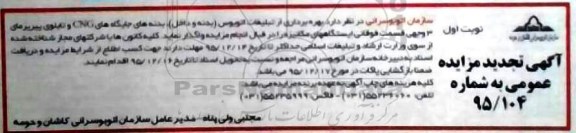 نوبت اول
آگهی تجدید مزایده
عمومی به شماره
۹۵/۱۰۴
سازمان اتوبوسرانی در نظر دارد بهره برداری از تبلیغات اتوبوس (بدنه و داخل) بدنه های جایگاه های CNG و تابلوی پیربرهای
۳ وجهی قسمت فوقانی ایستگاههای مکانیزه را در قبال انجام مزایده واگذار نماید. کلیه کانون ها یا شرکتهای مجاز شناخته شده
از سوی وزارت ارشاد و تبلیغات اسلامی حداکثر تا تاریخ ۹۵/۱۲/۱۴ مهلت دارند جهت کسب اطلاع از شرایط مزایده و دریافت
اسناد به دبیرخانه سازمان اتوبوسرانی مراجعه و نسبت به تحویل اسناد تا تاریخ ۹۵/۱۲/۱۶ اقدام نمایند.
ضمنا بازگشایی پاکات در مورخ ۹۵/۱۲/۱۷ می باشد.
کلیه هزینه های چاپ آگهی به عهده برنده مزایده می باشد.
تلفن: ۵۵۲۳۶۰۶۰ (۰۳۱) - فاکس: ۵۵۲۳۵۹۹۹ (۰۳۱)
مجتبی ولی پناه - مدیر عامل سازمان اتوبوسرانی کاشان و حومه